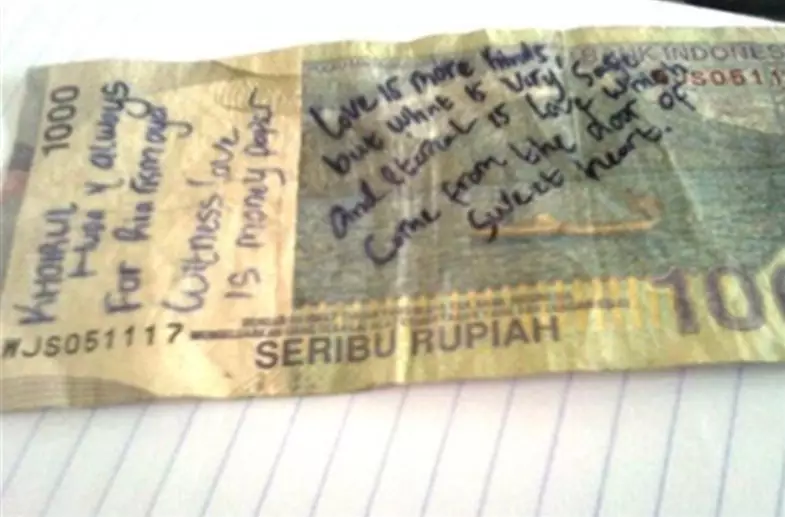 BANK INDONES
JS05111
Love is more kinds
but what is very safe
and eternal is love which
come from the door of
sweet heart.
1000
KHOIRUL
always
For
Witness love
is money paper
WJS051117
SERIBU RUPIAH
100